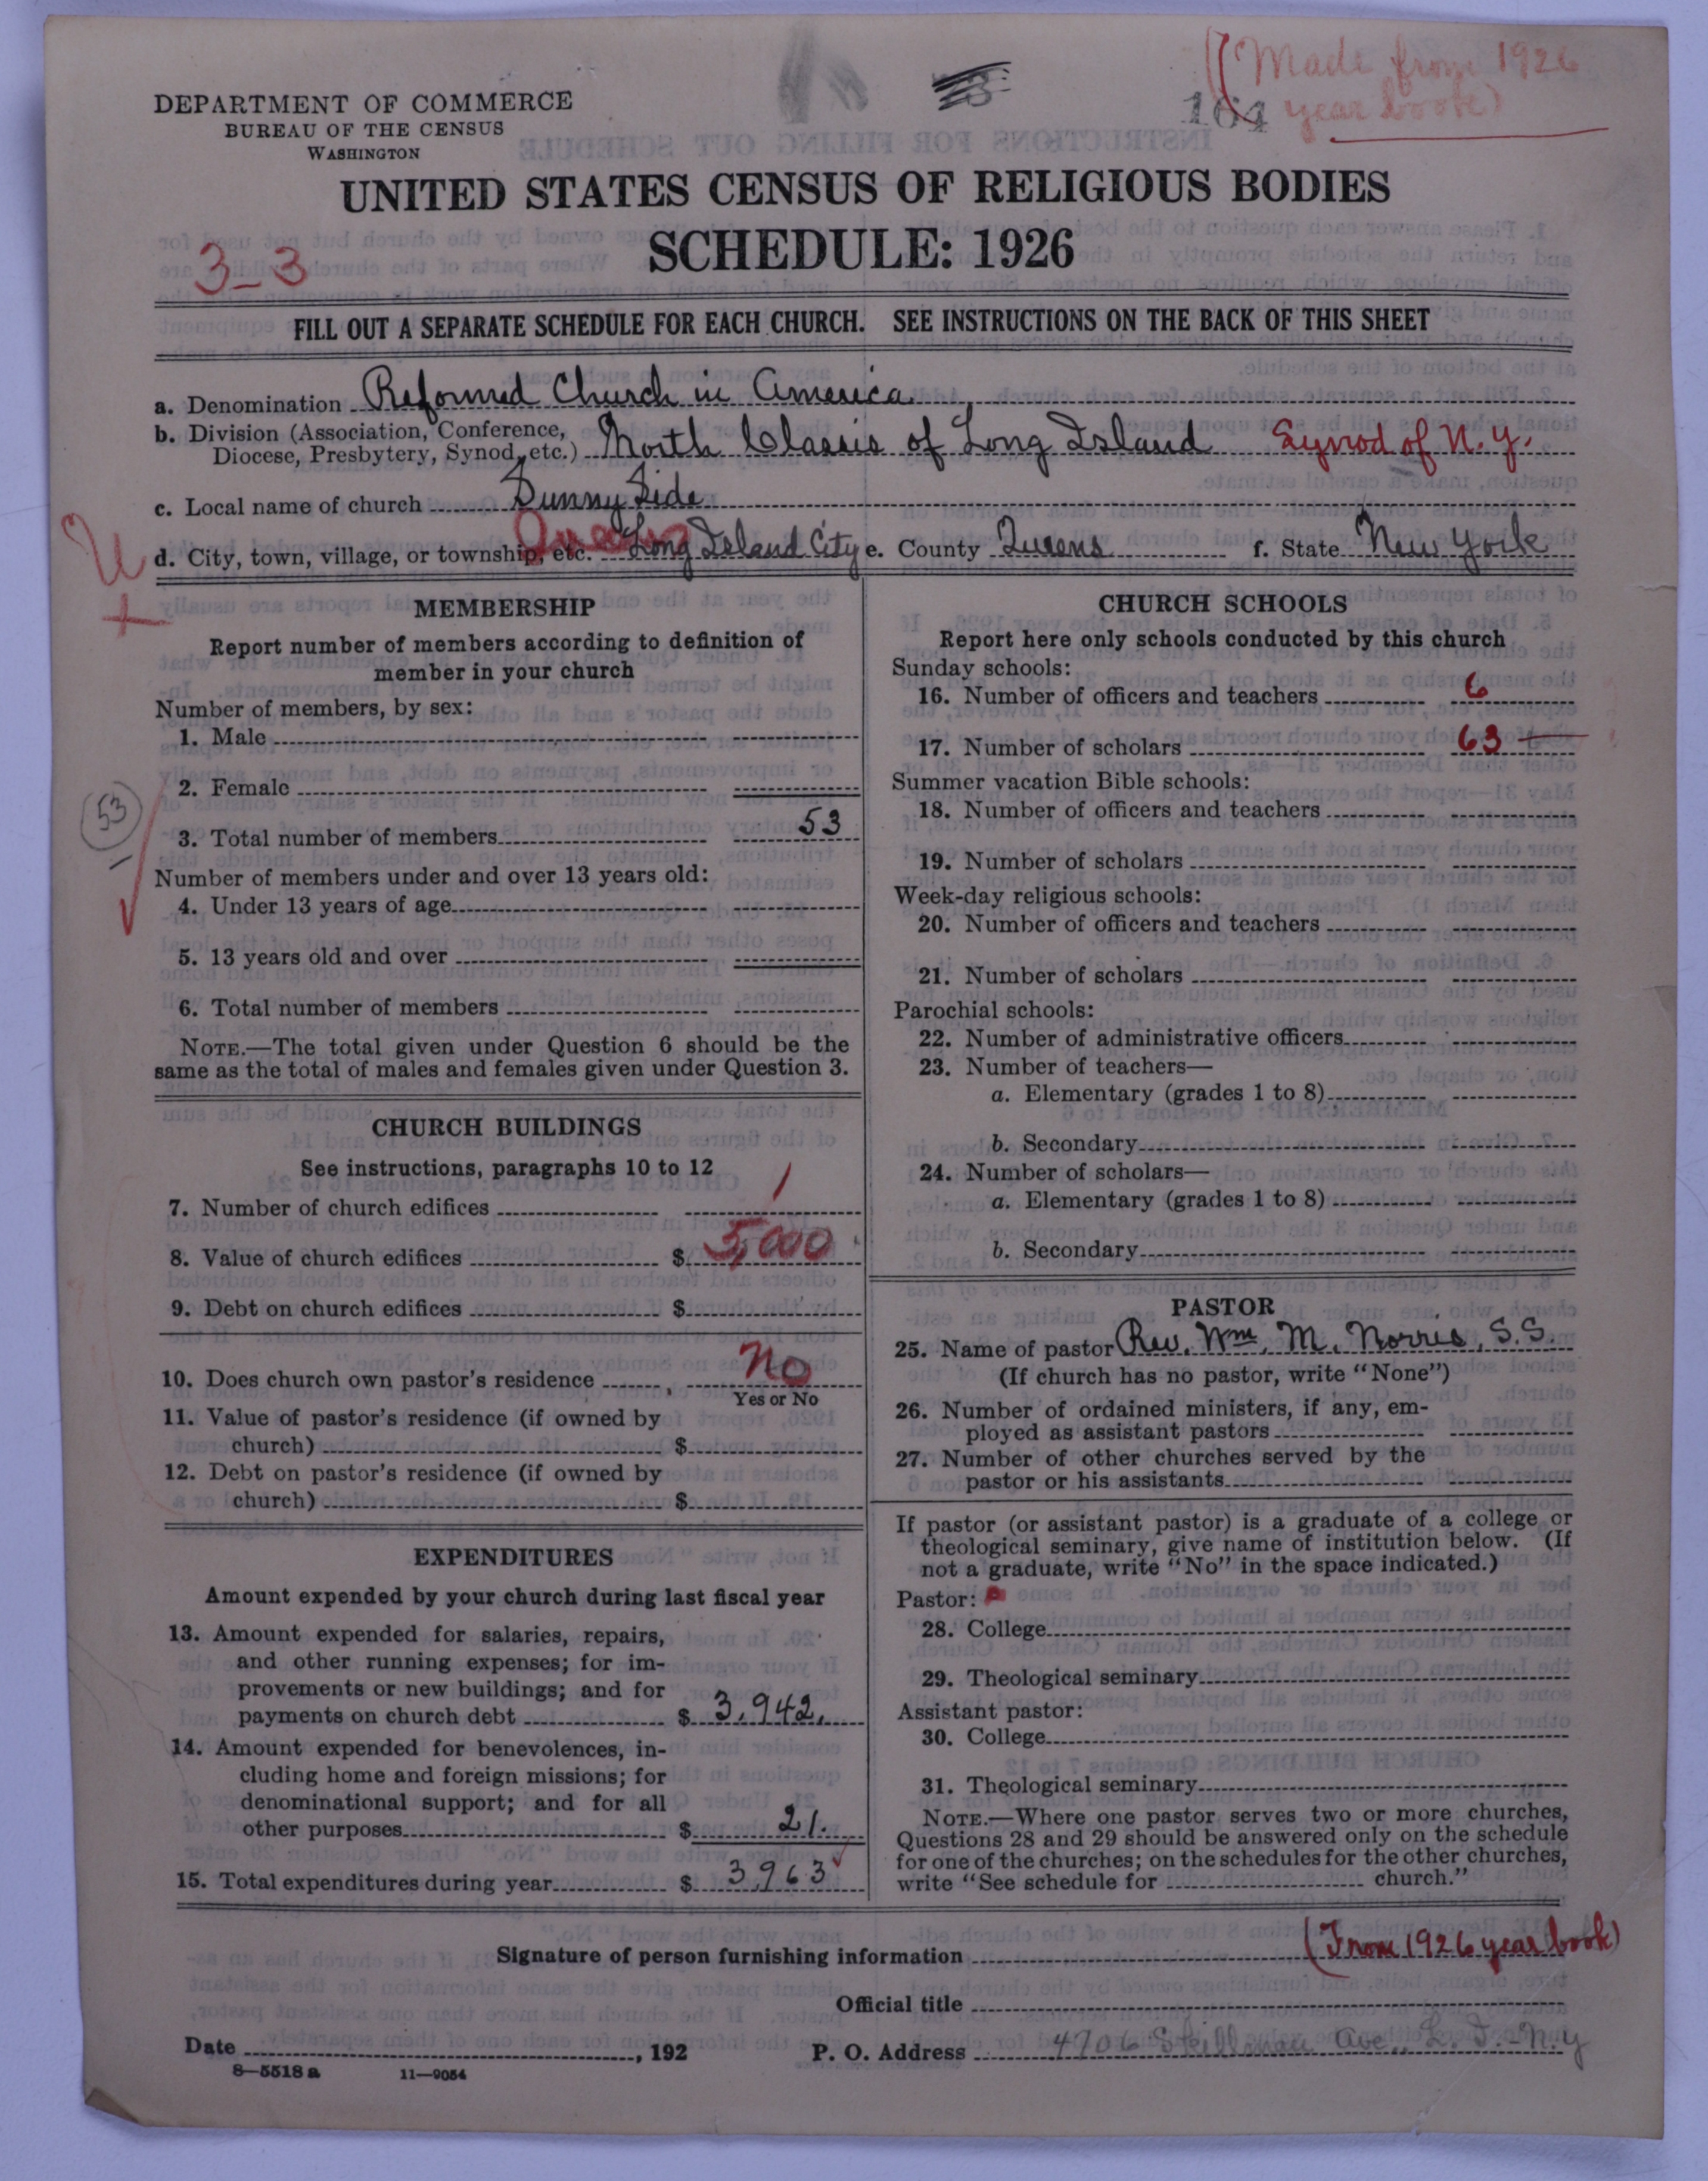 (Made from 1926
year book)
164
DEPARTMENT OF COMMERCE
BUREAU OF THE CENSUS
WASHINGTON
UNITED STATES CENSUS OF RELIGIOUS BODIES
SCHEDULE: 1926
3-3
FILL OUT A SEPARATE SCHEDULE FOR EACH CHURCH. SEE INSTRUCTIONS ON THE BACK OF THIS SHEET
a. Denomination Reformed Church in America
b. Division (Association, Conference,
Diocese, Presbytery, Synod, etc.) North Classis of Long Island Synod of N.Y.
c. Local name of church Sunny Side
d. City, town, village, or township, etc. Queens Long Island City e. County Queens f. State New York
MEMBERSHIP
Report number of members according to definition of
member in your church
Number of members, by sex:
1. Male
2. Female
53
3. Total number of members 53
Number of members under and over 13 years old:
4. Under 13 years of age
5. 13 years old and over
6. Total number of members
NOTE.—The total given under Question 6 should be the
same as the total of males and females given under Question 3.
CHURCH BUILDINGS
See instructions, paragraphs 10 to 12
7. Number of church edifices 1
8. Value of church edifices $ 5,000
9. Debt on church edifices $
10. Does church own pastor's residence No
Yes or No
11. Value of pastor's residence (if owned by
church) $
12. Debt on pastor's residence (if owned by
church) $
EXPENDITURES
Amount expended by your church during last fiscal year
13. Amount expended for salaries, repairs,
and other running expenses; for im-
provements or new buildings; and for
payments on church debt $ 3,942.
14. Amount expended for benevolences, in-
cluding home and foreign missions; for
denominational support; and for all
other purposes $ 21.
15. Total expenditures during year $ 3,963
CHURCH SCHOOLS
Report here only schools conducted by this church
Sunday schools:
16. Number of officers and teachers 6
17. Number of scholars 63
Summer vacation Bible schools:
18. Number of officers and teachers
19. Number of scholars
Week-day religious schools:
20. Number of officers and teachers
21. Number of scholars
Parochial schools:
22. Number of administrative officers
23. Number of teachers—
a. Elementary (grades 1 to 8)
b. Secondary
24. Number of scholars—
a. Elementary (grades 1 to 8)
b. Secondary
PASTOR
25. Name of pastor Rev. Wm. M. Norris, S.S.
(If church has no pastor, write "None")
26. Number of ordained ministers, if any, em-
ployed as assistant pastors
27. Number of other churches served by the
pastor or his assistants
If pastor (or assistant pastor) is a graduate of a college or
theological seminary, give name of institution below. (If
not a graduate, write "No" in the space indicated.)
Pastor:
28. College
29. Theological seminary
Assistant pastor:
30. College
31. Theological seminary
NOTE.—Where one pastor serves two or more churches,
Questions 28 and 29 should be answered only on the schedule
for one of the churches; on the schedules for the other churches,
write "See schedule for church."
Signature of person furnishing information (From 1926 year book)
Official title
Date , 192
P. O. Address 4706 Skillman Ave., L. I. N.Y
8—5518 a 11—9054